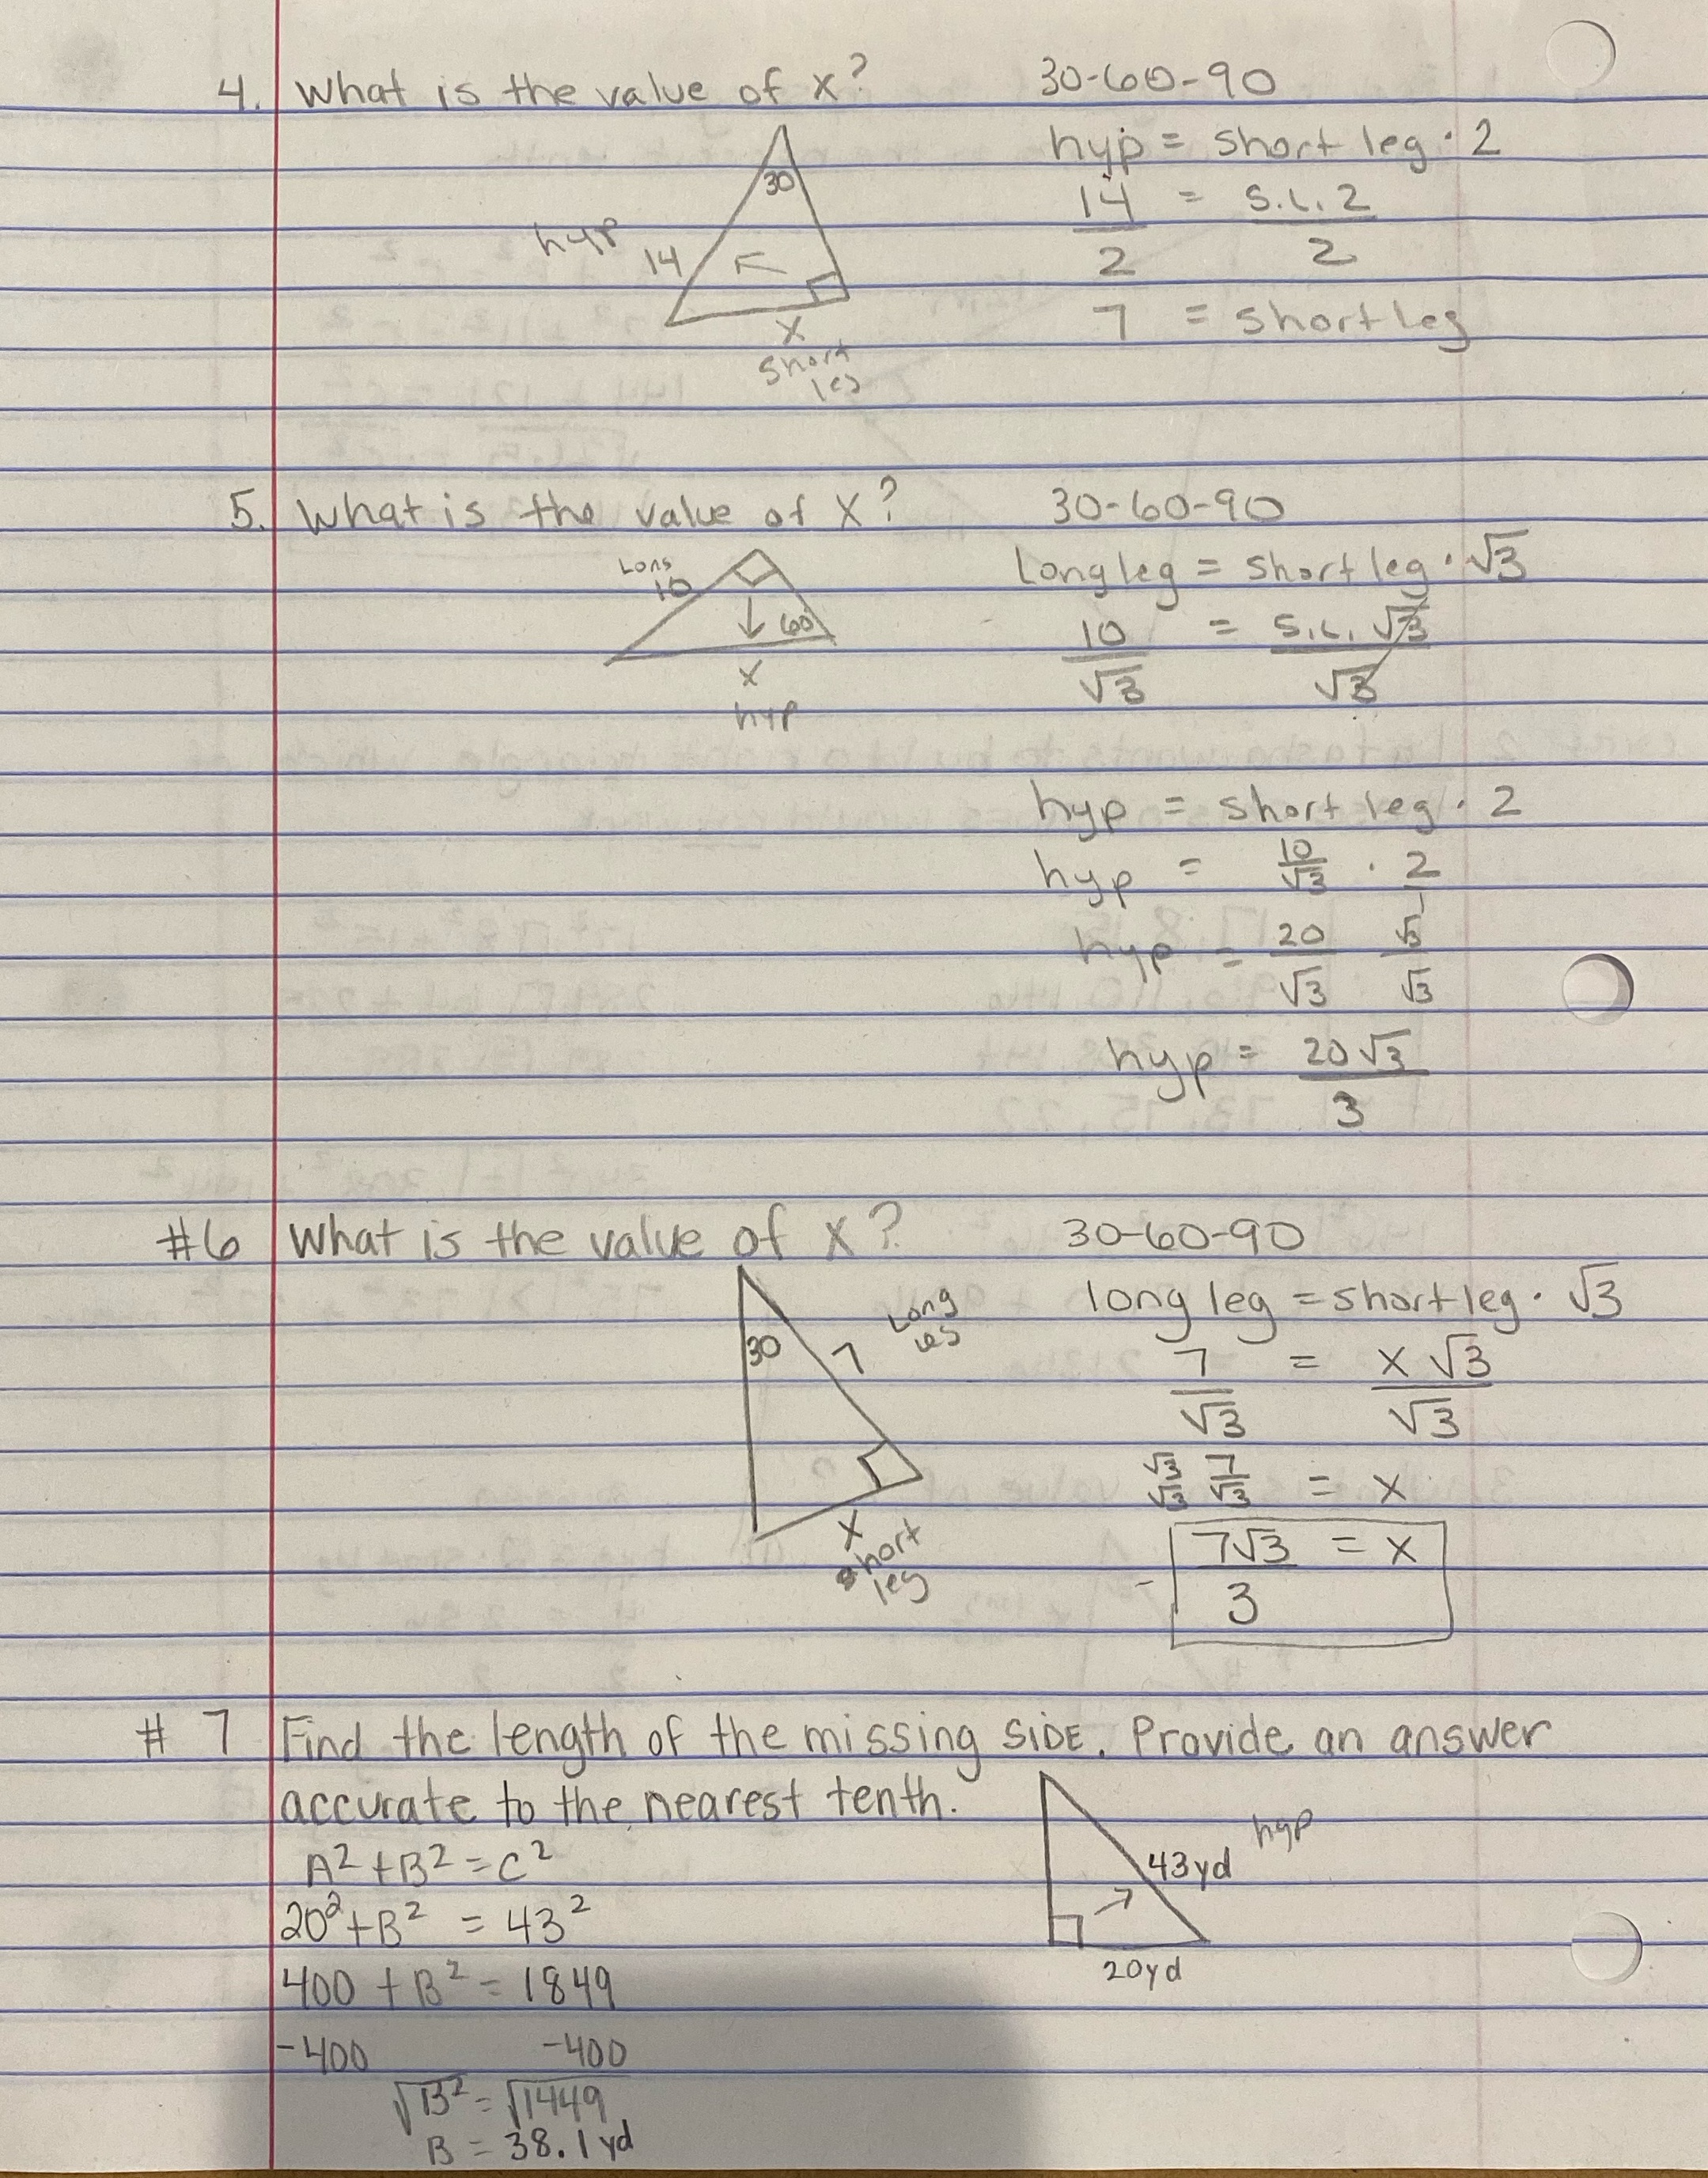 4. What is the value of x?
30-60-90
30
hyp
14
x
short
leg
hyp = short leg · 2
14 = s.l. 2
2 2
7 = short leg
5. What is the value of x?
30-60-90
Long
10
60
x
hyp
Long leg = short leg · √3
10 = s.l. √3
√3 √3
hyp = short leg · 2
hyp = 10/√3 · 2/1
hyp = 20/√3 √3/√3
hyp = 20√3
3
#6 What is the value of x?
30-60-90
30
7
Long
leg
x
short
leg
long leg = short leg · √3
7 = x √3
√3 √3
√3/√3 7/√3 = x
7√3 = x
3
# 7 Find the length of the missing SIDE. Provide an answer
accurate to the nearest tenth.
hyp
43yd
20yd
A² + B² = C²
20² + B² = 43²
400 + B² = 1849
-400 -400
√B² = √1449
B = 38.1 yd